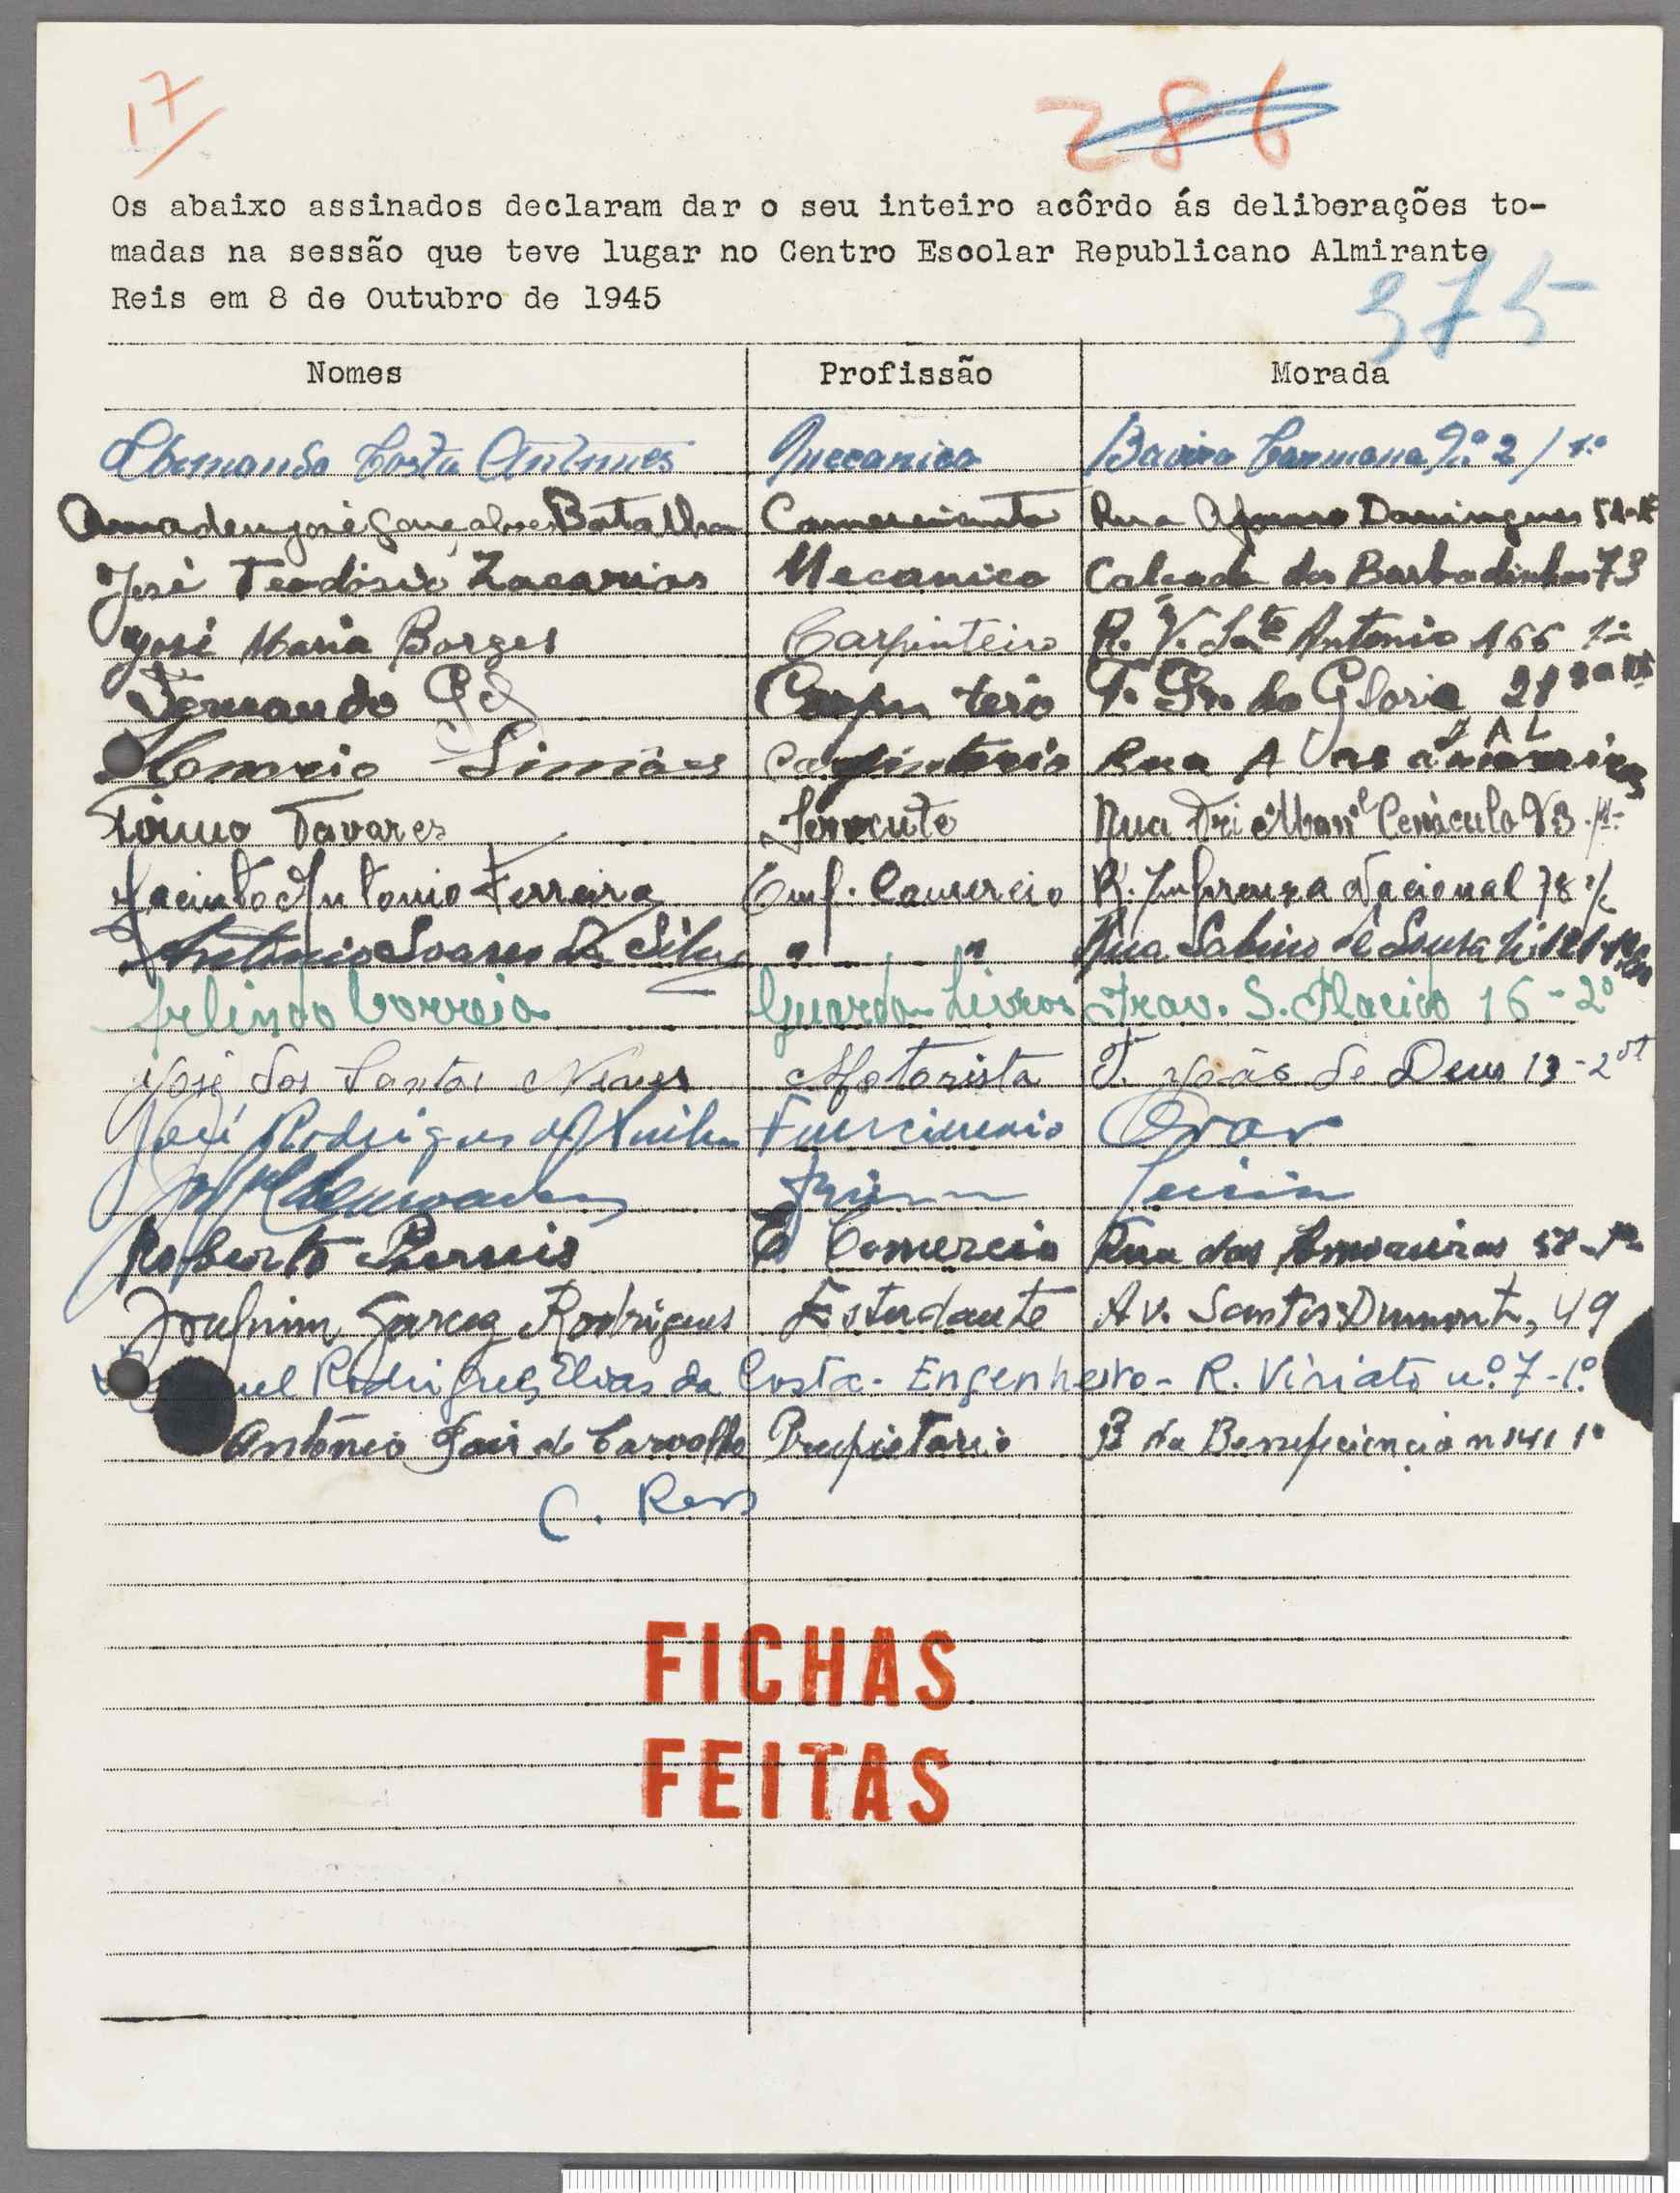 17
286
Os abaixo assinados declaram dar o seu inteiro acôrdo ás deliberações to-
madas na sessão que teve lugar no Centro Escolar Republicano Almirante
Reis em 8 de Outubro de 1945
375
Nomes Profissão Morada
Costa Antunes Mecanico Bairro Carmona Nº 2 / 1º
Amadeu José Gonçalves Batalha Comerciante Rua Afonso Domingues
José Teodósio Zacarias Mecanico Calçada dos Barbadinhos 73
José Maria Borges Carpinteiro R. V. Sto Antonio 166 1º
Fernando Gil da Gloria 21
Simões Rua
Tavares Servente Rua Frei Manl Cenáculo
Jacinto Antonio Ferreira Emp. Comercio R. Imprensa Nacional 78
Antonio Soares da Silva " " Rua Sabino de Sousa
Arlindo Correia Guarda-Livros Trav. S. Placido 16-2º
José dos Santos Neves Motorista T. João de Deus 13-2º
José Rodrigues Ovar
Roberto E Comercio Rua das Amoreiras
Joaquim Garcia Rodrigues Estudante Av. Santos Dumont, 49
Rodrigues Elias da Costa - Engenheiro - R. Viriato nº 7-1º
António de Carvalho Propietario R da Beneficiencia n 141 1º
C. Reis
FICHAS
FEITAS